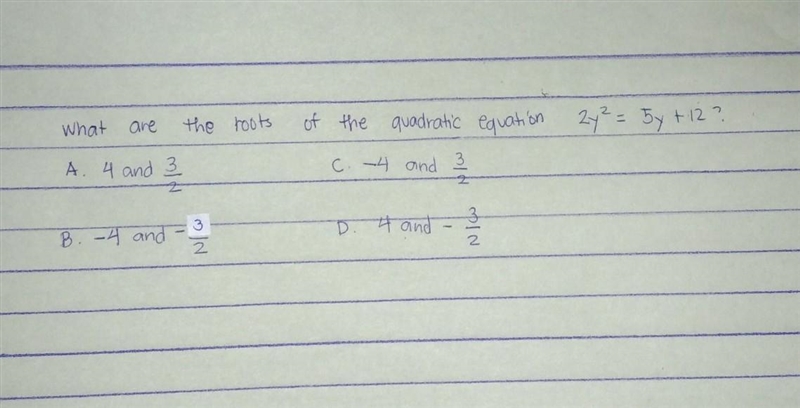 What are the roots of the quadratic equation 2y² = 5y + 12?
A. 4 and 3/2 C. -4 and 3/2
B. -4 and -3/2 D. 4 and -3/2